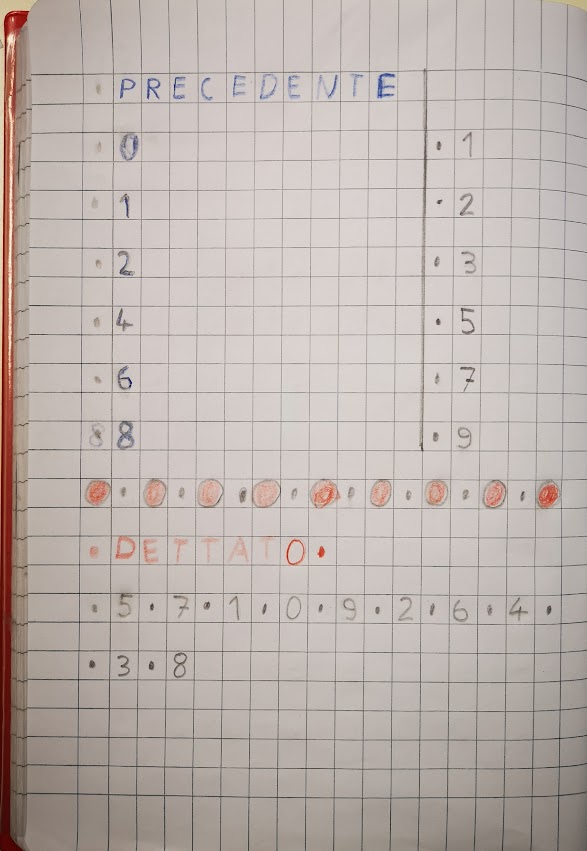 • PRECEDENTE
• 0 • 1
• 1 • 2
• 2 • 3
• 4 • 5
• 6 • 7
8 8 • 9
• DETTATO •
• 5 • 7 • 1 • 0 • 9 • 2 • 6 • 4 •
• 3 • 8